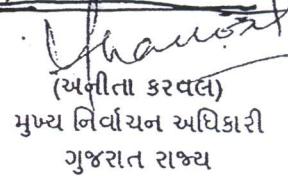 (અનીતા કરવલ)
મુખ્ય નિર્વાચન અધિકારી
ગુજરાત રાજ્ય